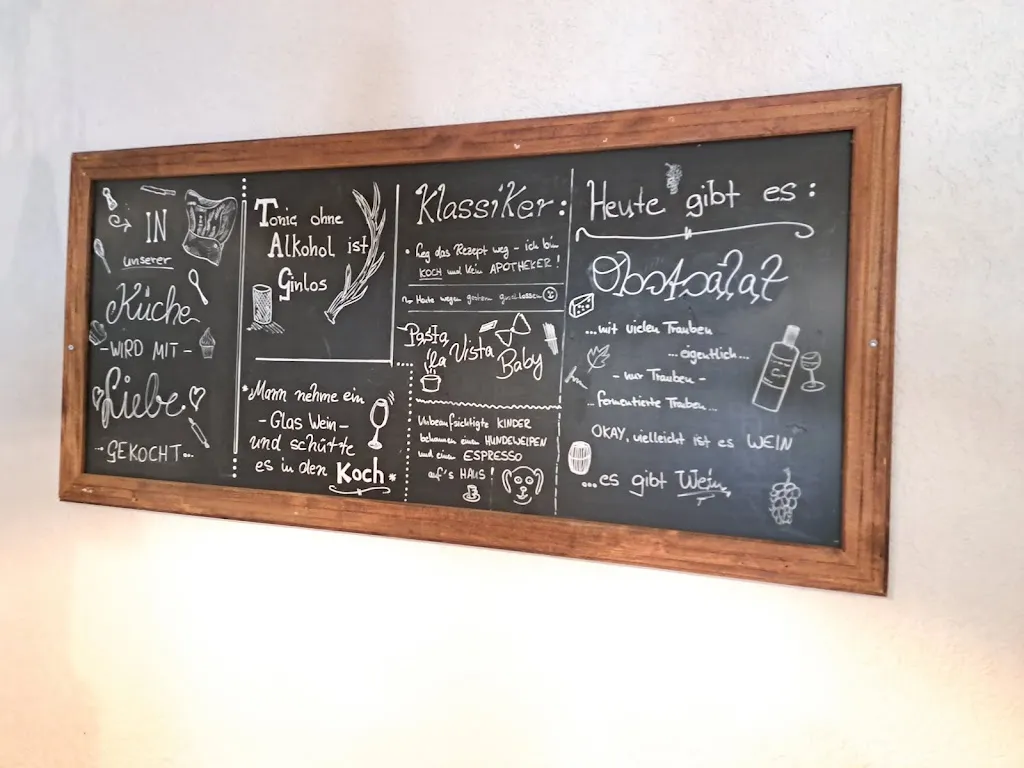 IN
unserer
Küche
- WIRD MIT -
Liebe
... GEKOCHT...
Tonic ohne
Alkohol ist
Ginlos
*Mann nehme ein
- Glas Wein -
und schütte
es in den Koch*
Klassiker:
• Leg das Rezept weg - ich bin
KOCH und kein APOTHEKER!
Heute wegen gestern geschlossen
Pasta
la Vista
Baby
Unbeaufsichtigte KINDER
bekommen einen HUNDEWELPEN
und einen ESPRESSO
auf's HAUS!
Heute gibt es:
Obstsalat
...mit vielen Trauben
...eigentlich...
- nur Trauben -
.. fermentierte Trauben...
OKAY, vielleicht ist es WEIN
...es gibt Wein,